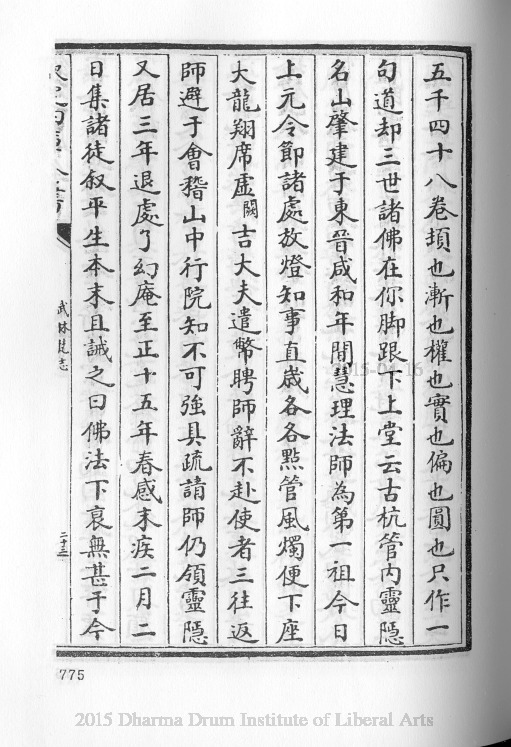 五千四十八卷頊也漸也權也實也偏也圓也只作一
句道却三世諸佛在你脚跟下上堂云古杭管内靈隱
名山肇建于東晉咸和年間慧理法師為第一祖今日
上元令節諸處放燈知事直歲各各點管風燭便下座
大龍翔席虛闕吉大夫遣幣聘師辭不赴使者三往返
師避于會稽山中行院知不可強具疏請師仍領靈隱
又居三年退處了幻庵至正十五年春感末疾二月二
日集諸徒叙平生本末且誡之曰佛法下衰無甚于今
武林梵志
二十三
775
2015-04-16
2015 Dharma Drum Institute of Liberal Arts